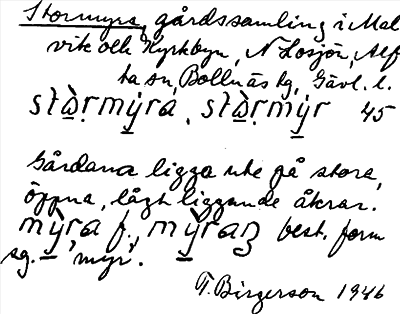 Stormyra, gårdssamling i Mal
vik och Kyrkbyn, N Losjön, Alf
ta sn, Bollnäs tg, Gävl. l.
stòrmyra, stòrmyr 45
Gårdana ligga ute på stora,
öppna, lågt liggande åkrar.
mỳra f., mỳraʒ best. form
sg. – 'myr'.
T. Birgerson 1946